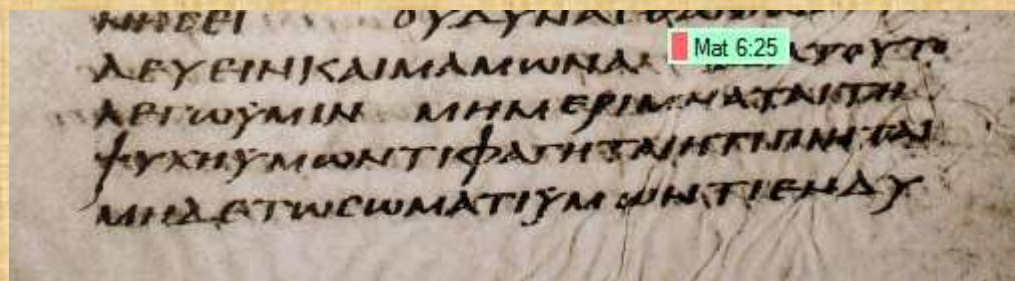 ΝΗϹΕΙ ΟΥΔΥΝΑ
Mat 6:25
ΛΕΥΕΙΝΚΑΙΜΑΜΩΝΑ
ΛΕΓΩΥΜΙΝ ΜΗΜΕΡΙΜΝΑΤΑΙΤΗ
ΨΥΧΗΥΜΩΝΤΙΦΑΓΗΤΑΙΗΤΙΠΙΗΤΑΙ
ΜΗΔΕΤΩϹΩΜΑΤΙΥΜΩΝΤΙΕΝΔΥ